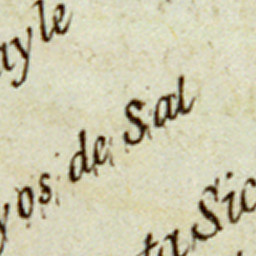 ayle
yos de Sal
ta Sic